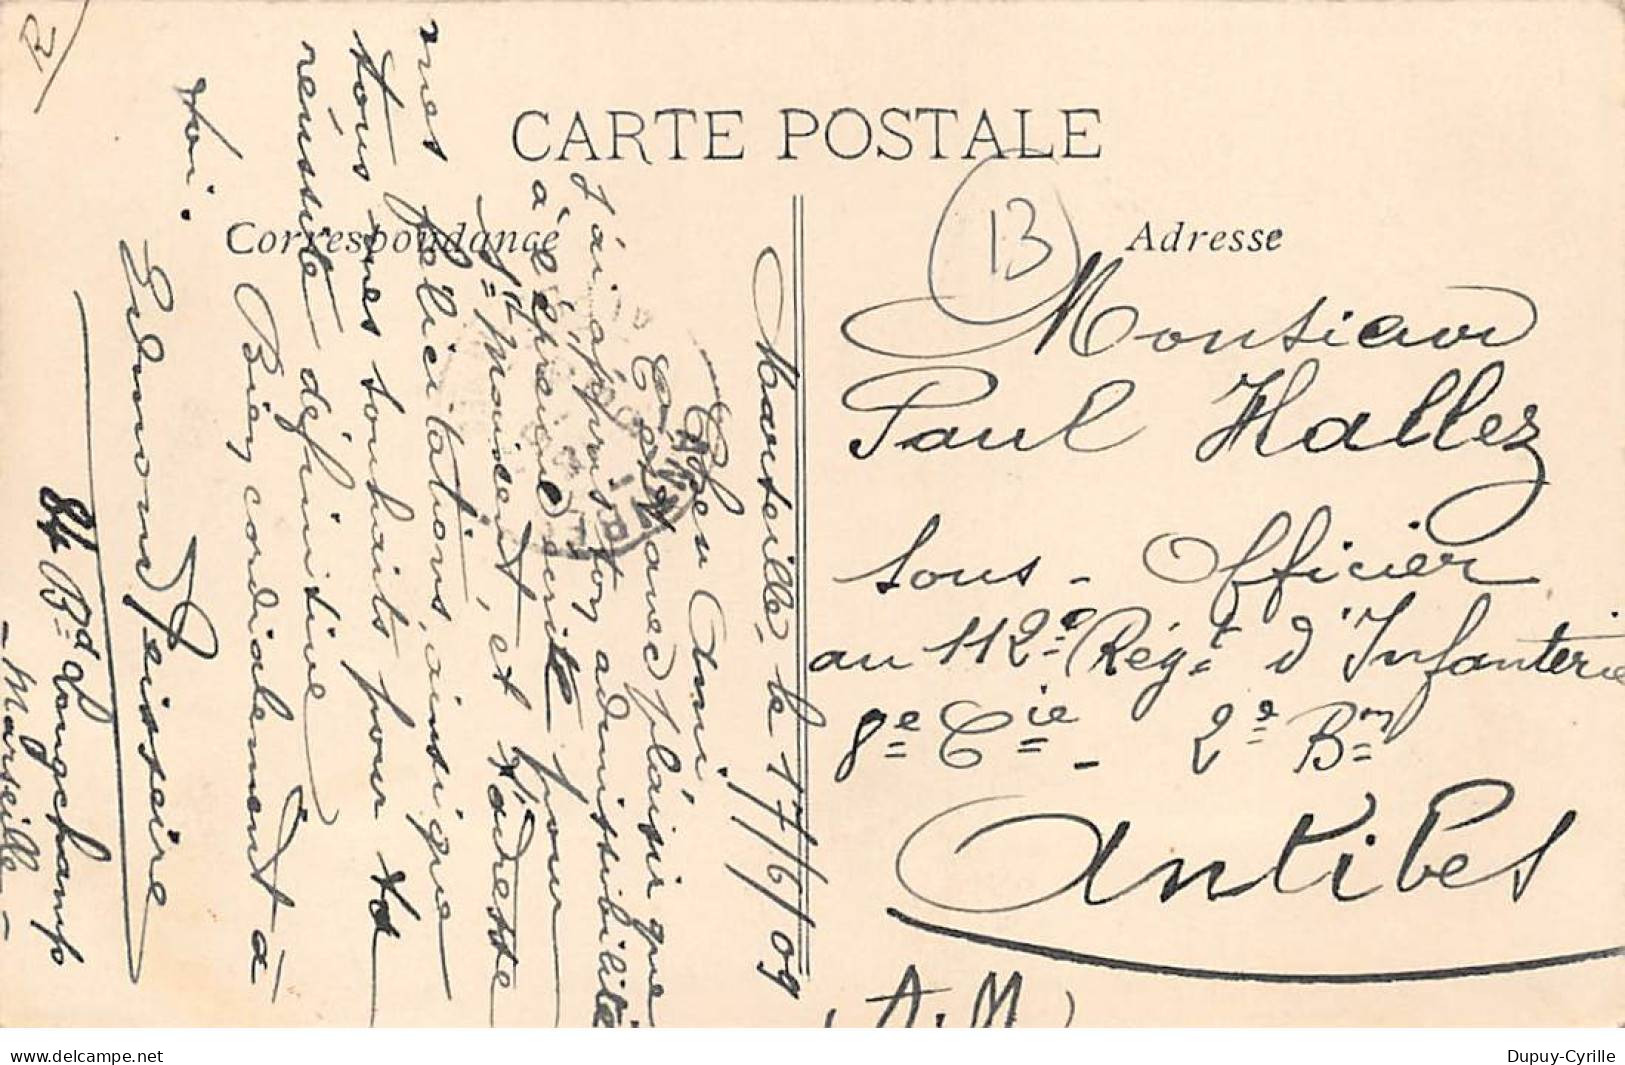 R
CARTE POSTALE
Correspondance
Adresse
13
Marseille le 17/6/09
Cher Ami,
C'est avec plaisir que
j'ai appris ton admissibilité
à l'épreuve écrite pour
St Maixent, et t'adresse
mes félicitations, ainsi que
tous mes souhaits pour ta
réussite définitive
Bien cordialement à
toi.
Edmond
84 Bd Longchamp
- Marseille -
Monsieur
Paul Hallez
Sous-Officier
au 112e Régt d'Infanterie
8e Cie - 2e Bon
Antibes
(A.M)
delcampe.net
Dupuy-Cyrille